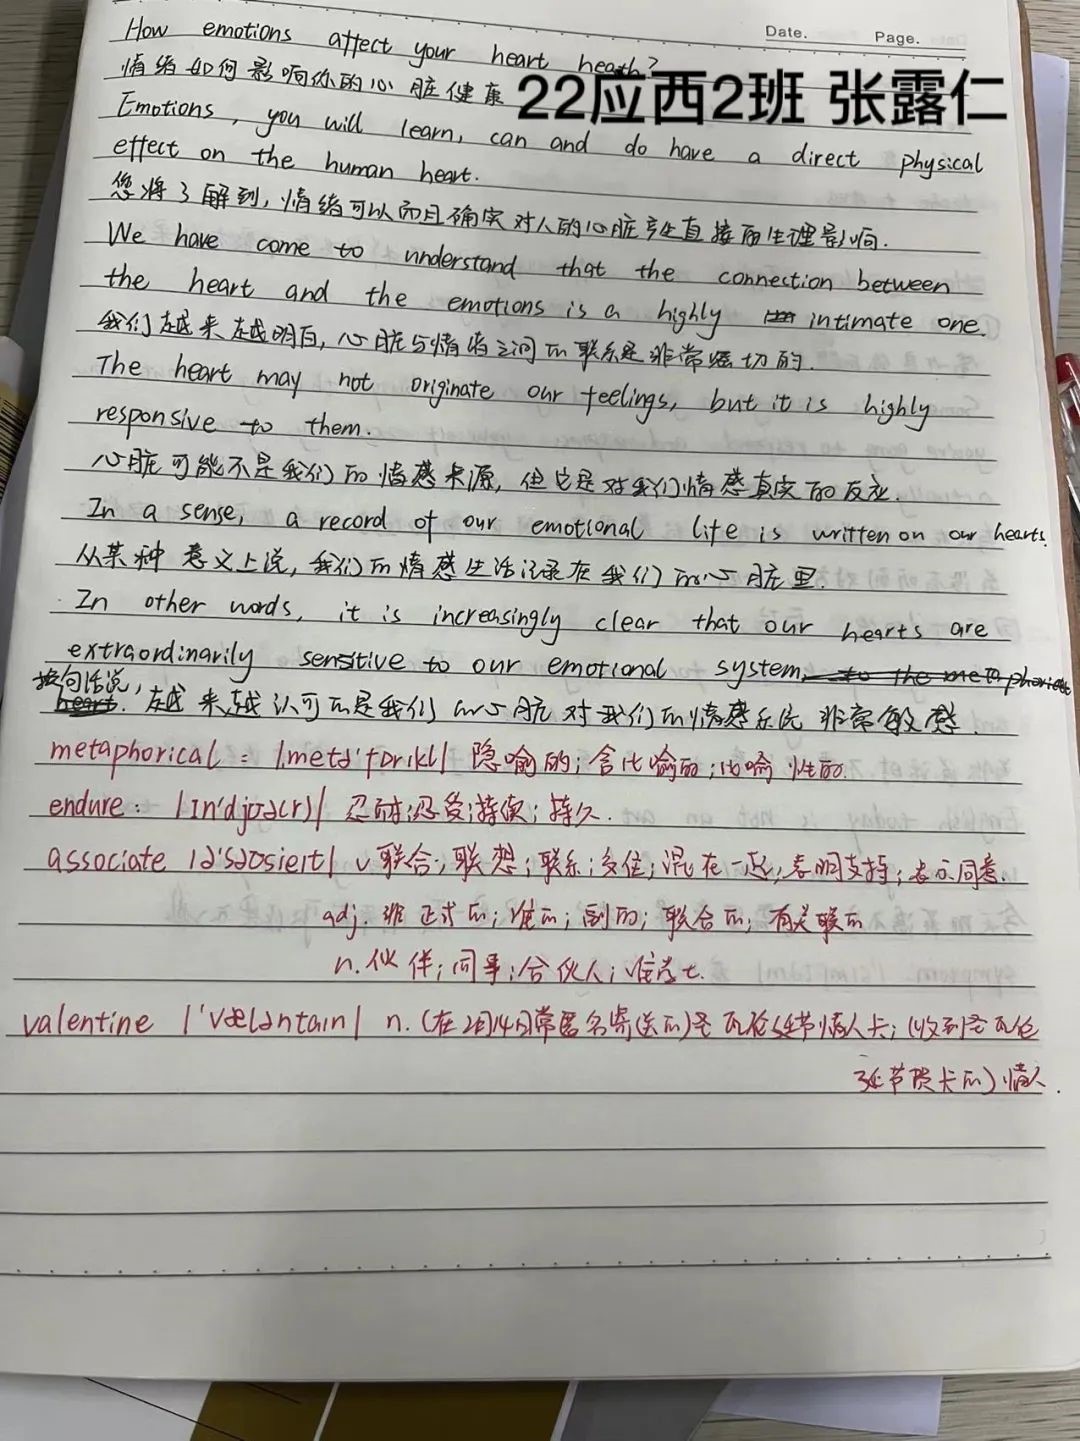 Date. Page.
How emotions affect your heart heath?
情绪如何影响你的心脏健康
22应西2班 张露仁
Emotions, you will learn, can and do have a direct physical
effect on the human heart.
您将了解到,情绪可以而且确实对人的心脏产生直接的生理影响.
We have come to understand that the connection between
the heart and the emotions is a highly intimate one.
我们越来越明白,心脏与情绪之间的联系是非常密切的.
The heart may not originate our feelings, but it is highly
responsive to them.
心脏可能不是我们的情感来源,但它是对我们情感真实的反应.
In a sense, a record of our emotional life is written on our hearts.
从某种意义上说,我们的情感生活记录在我们的心脏里.
In other words, it is increasingly clear that our hearts are
extraordinarily sensitive to our emotional system, to the metaphorical
换句话说,
heart. 越来越认可的是我们的心脏对我们的情感系统非常敏感.
metaphorical: |ˌmetəˈfɒrɪkl| 隐喻的;含比喻的;比喻性的.
endure: |ɪnˈdjʊə(r)| 忍耐;忍受;持续;持久.
associate |əˈsəʊsieɪt| v联合;联想;联系;交往;混在一起;表明支持;表示同意.
adj. 非正式的;准的;副的;联合的;有关联的
n.伙伴;同事;合伙人;准学士.
valentine |ˈvæləntaɪn| n.(在2月14日常匿名寄送的)圣瓦伦廷节情人卡;(收到圣瓦伦
廷节贺卡的)情人.